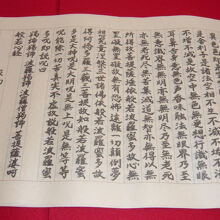 異色色即是空空即是色受想行識亦復如
是舎利子是諸法空相不生不滅不垢不浄
不増不減是故空中無色無受想行識無眼
耳鼻舌身意無色聲香味觸法無眼界乃至
無意識界無無明亦無無明盡乃至無老死
亦無老死盡無苦集滅道無智亦無得以無
所得故菩提薩埵依般若波羅蜜多故心無
罣礙無罣礙故無有恐怖遠離一切顛倒夢
想究竟涅槃三世諸佛依般若波羅蜜多故
得阿耨多羅三藐三菩提故知般若波羅蜜
多是大神呪是大明呪是無上呪是無等等
呪能除一切苦真實不虚故説般若波羅蜜
多呪即説呪曰
羯諦羯諦波羅羯諦波羅僧羯諦菩提薩婆訶
般若心経